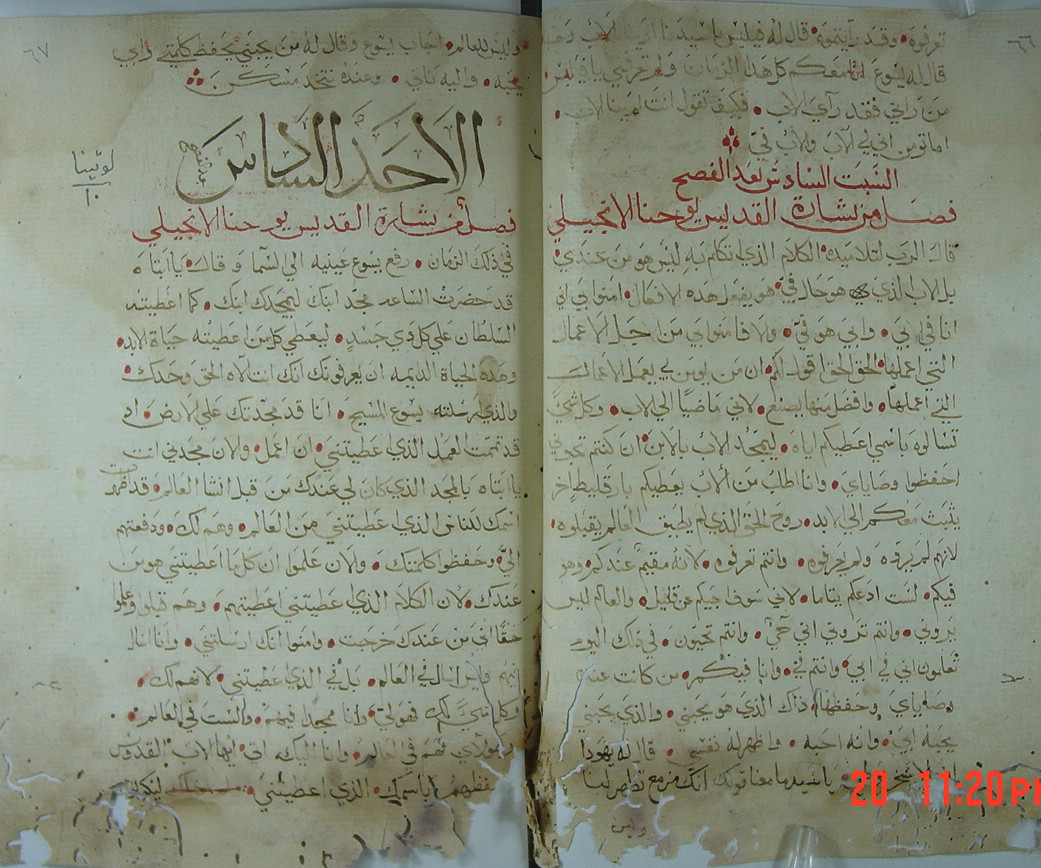 ٦٦
تعرفوه وقد رأيتموه قال له فيلبس يا سيدنا ارنا الاب وحسبنا
قال له يسوع انا معكم كل هذا الزمان ولم تعرفني يا فيلبس
من رآني فقد رآي الاب فكيف تقول انت ارينا الاب
اما تومن اني في الآب والاب فيّ
السبت السادس بعد الفصح
فصل من بشارة القديس يوحنا الانجيلي
قال الرب لتلاميذه الكلام الذي اتكلم به ليس هو من عندي
بل الاب الذي هو حال فيّ هو يفعل هذه الافعال امنوا بي اني
انا في ابي وابي هو فيّ والا فامنوا بي من اجل الاعمال
التي اعملها الحق الحق اقول لكم ان من يومن بي يعمل الاعمال
التي اعملها وافضل منها يصنع لاني ماضيا الي الاب وكل شيّ
تسالوه باسمي اعطيكم اياه ليمجد الاب بالابن ان كنتم تحبوني
احفظوا وصاياي وانا اطلب من الاب يعطيكم بارقليط اخر
يثبت معكم الي الابد روح الحق الذي لم يطيق العالم يقبلوه
لانهم لم يروه ولم يعرفوه وانتم تعرفوه لانه مقيم عندكم وهو
فيكم لست ادعكم يتاما لاني سوف اجيكم عن قليل والعالم ليس
يروني وانتم تروني اني حيّ وانتم تحيون في ذلك اليوم
تعلمون اني في ابي وانتم فيّ وانا فيكم من كانت عنده
وصاياي وحفظها ذاك الذي هو يحبني والذي يحبني
يحبه ابي وانا احبه واظهر له نفسي قال له يهودا
يا سيد ما معنا قولك انك مزمع تظهر لنا
وليس
٦٧
وليس للعالم اجاب يسوع وقال له من يحبني يحفظ كلمتي وابي
يحبه واليه ناتي وعنده نتخد مسكن
الاحد السادس
بعد الفصح
لوقينا
١٠
فصل من بشارة القديس يوحنا الانجيلي
في ذلك الزمان رفع يسوع عينيه الي السما وقال يا ابتاه
قد حضرت الساعه مجد ابنك ليمجدك ابنك كما اعطيته
السلطان علي كل ذي جسد ليعطي كل من اعطيته حياة الابد
وهذه الحياة الدايمه ان يعرفونك انك انت الاه الحق وحدك
والذي ارسلته يسوع المسيح انا قد مجدتك علي الارض اد
قد تممت العمل الذي اعطيتني ان اعمل والان مجدني انت
يا ابتاه بالمجد الذي كان لي عندك من قبل انشا العالم قد اظهرت
اسمك للناس الذي اعطيتني من العالم وهم لك ودفعتهم
اليّ وحفظوا كلمتك والان علموا ان كل ما اعطيتني هو من
عندك لان الكلام الذي اعطيتني اعطيتهم وهم قبلوا وعلموا
حقا اني من عندك خرجت وامنوا انك ارسلتني وانا اسال
فيهم وليس اسال في العالم بل في الذي اعطيتني لانهم لك
وكل شيّ لك فهو لي وانا ممجدا فيهم ولست في العالم
وهولاي فهم في العالم وانا اليك اتي ايها الاب القدوس
احفظهم باسمك الذي اعطيتني ليكونوا
20 11:20 PM